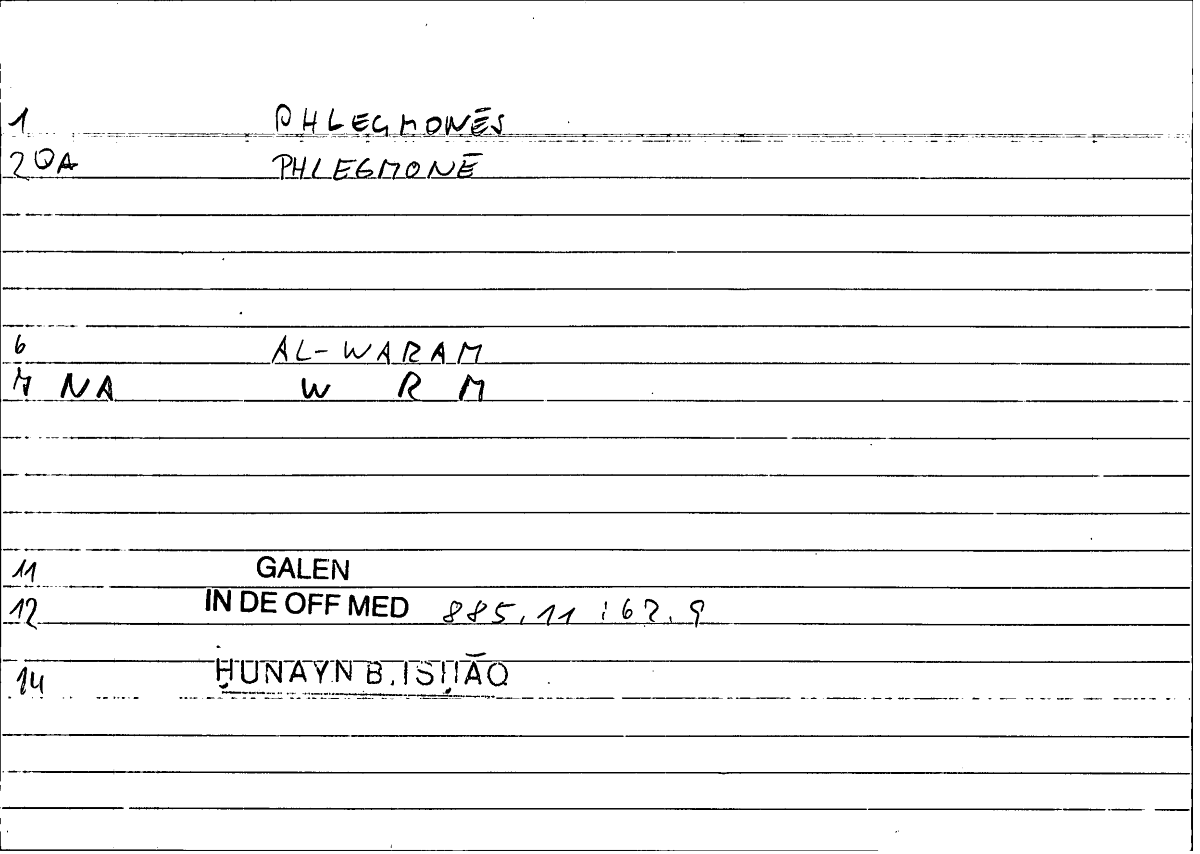 1 PHLEGMONĒS
20A PHLEGMONĒ
6 AL-WARAM
7 NA W R M
11 GALEN
12 IN DE OFF MED 885,11 : 62,9
14 ḤUNAYN B. ISḤĀQ